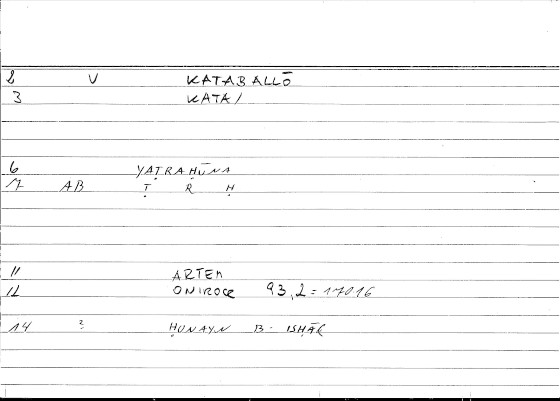 2 V KATABALLŌ
3 KATA/
6 YAṬRAḤŪNA
7 AB Ṭ R Ḥ
11 ARTEM
12 ONIROCR 93,2=17016
14 ? ḤUNAYN B. ISḤĀQ